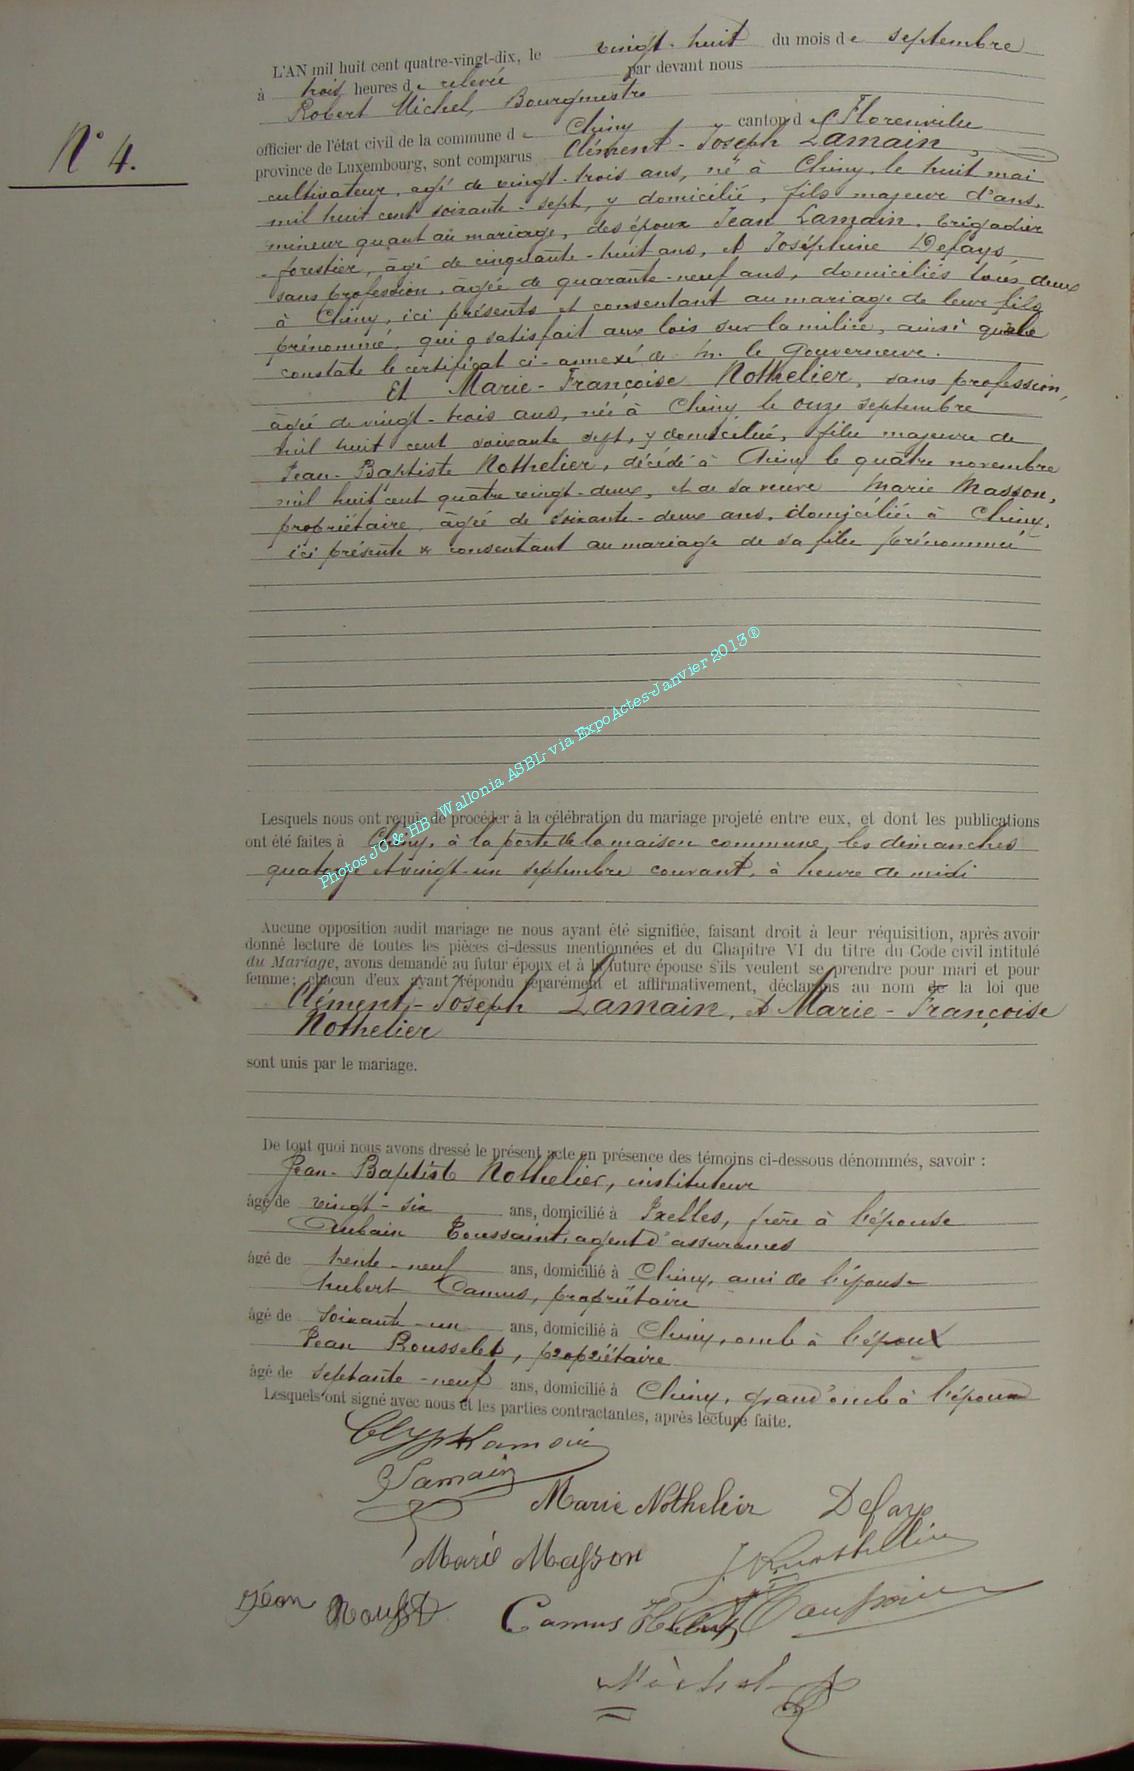 N° 4.
L'AN mil huit cent quatre-vingt-dix, le vingt-huit du mois de septembre
à trois heures de relevée par devant nous
Robert Michel, Bourgmestre
officier de l'état civil de la commune de Chiny canton de Florenville
province de Luxembourg, sont comparus Clément-Joseph Lamain,
cultivateur, agé de vingt-trois ans, né à Chiny, le huit mai
mil huit cent soixante-sept, y domicilié, fils majeur d'ans,
mineur quant au mariage, des époux Jean Lamain, brigadier
-forestier, âgé de cinquante-huit ans, et Joséphine Defays,
sans profession, agée de quarante-neuf ans, domiciliés tous deux
à Chiny, ici présents et consentant au mariage de leur fils
prénommé, qui a satisfait aux lois sur la milice, ainsi que le
constate le certificat ci-annexé de M. le Gouverneur.
Et Marie-Françoise Nothelier, sans profession,
âgée de vingt-trois ans, née à Chiny le onze septembre
mil huit cent soixante sept, y domiciliée, fille majeure de
Jean-Baptiste Nothelier, décédé à Chiny le quatre novembre
mil huit cent quatre vingt-deux, et de sa veuve Marie Masson,
propriétaire, âgée de soixante-deux ans, domiciliée à Chiny,
ici présente & consentant au mariage de sa fille prénommée
Lesquels nous ont requis de procéder à la célébration du mariage projeté entre eux, et dont les publications
ont été faites à Chiny, à la porte de la maison commune, les dimanches
quatorze et vingt-un septembre courant, à heure de midi
Aucune opposition audit mariage ne nous ayant été signifiée, faisant droit à leur réquisition, après avoir
donné lecture de toutes les pièces ci-dessus mentionnées et du Chapitre VI du titre du Code civil intitulé
du Mariage, avons demandé au futur époux et à la future épouse s'ils veulent se prendre pour mari et pour
femme; chacun d'eux ayant répondu séparément et affirmativement, déclarons au nom de la loi que
Clément-Joseph Lamain, et Marie-Françoise
Nothelier
sont unis par le mariage.
De tout quoi nous avons dressé le présent acte en présence des témoins ci-dessous dénommés, savoir :
Jean-Baptiste Nothelier, instituteur
âgé de vingt-six ans, domicilié à Ixelles, frère à l'épouse
Aubain Toussaint, agent d'assurances
âgé de trente-neuf ans, domicilié à Chiny, ami de l'épouse
Hubert Camus, propriétaire
âgé de soixante-un ans, domicilié à Chiny, oncle à l'époux
Jean Rousselet, propriétaire
âgé de septante-neuf ans, domicilié à Chiny, grand'oncle à l'époux
Lesquels ont signé avec nous et les parties contractantes, après lecture faite.
Lamain
Marie Nothelier Defays
Marie Masson
Jean Camus Hubert Toussaint
Michel
Photos JC & HB - Wallonia ASBL- via ExpoActes-Janvier 2013®